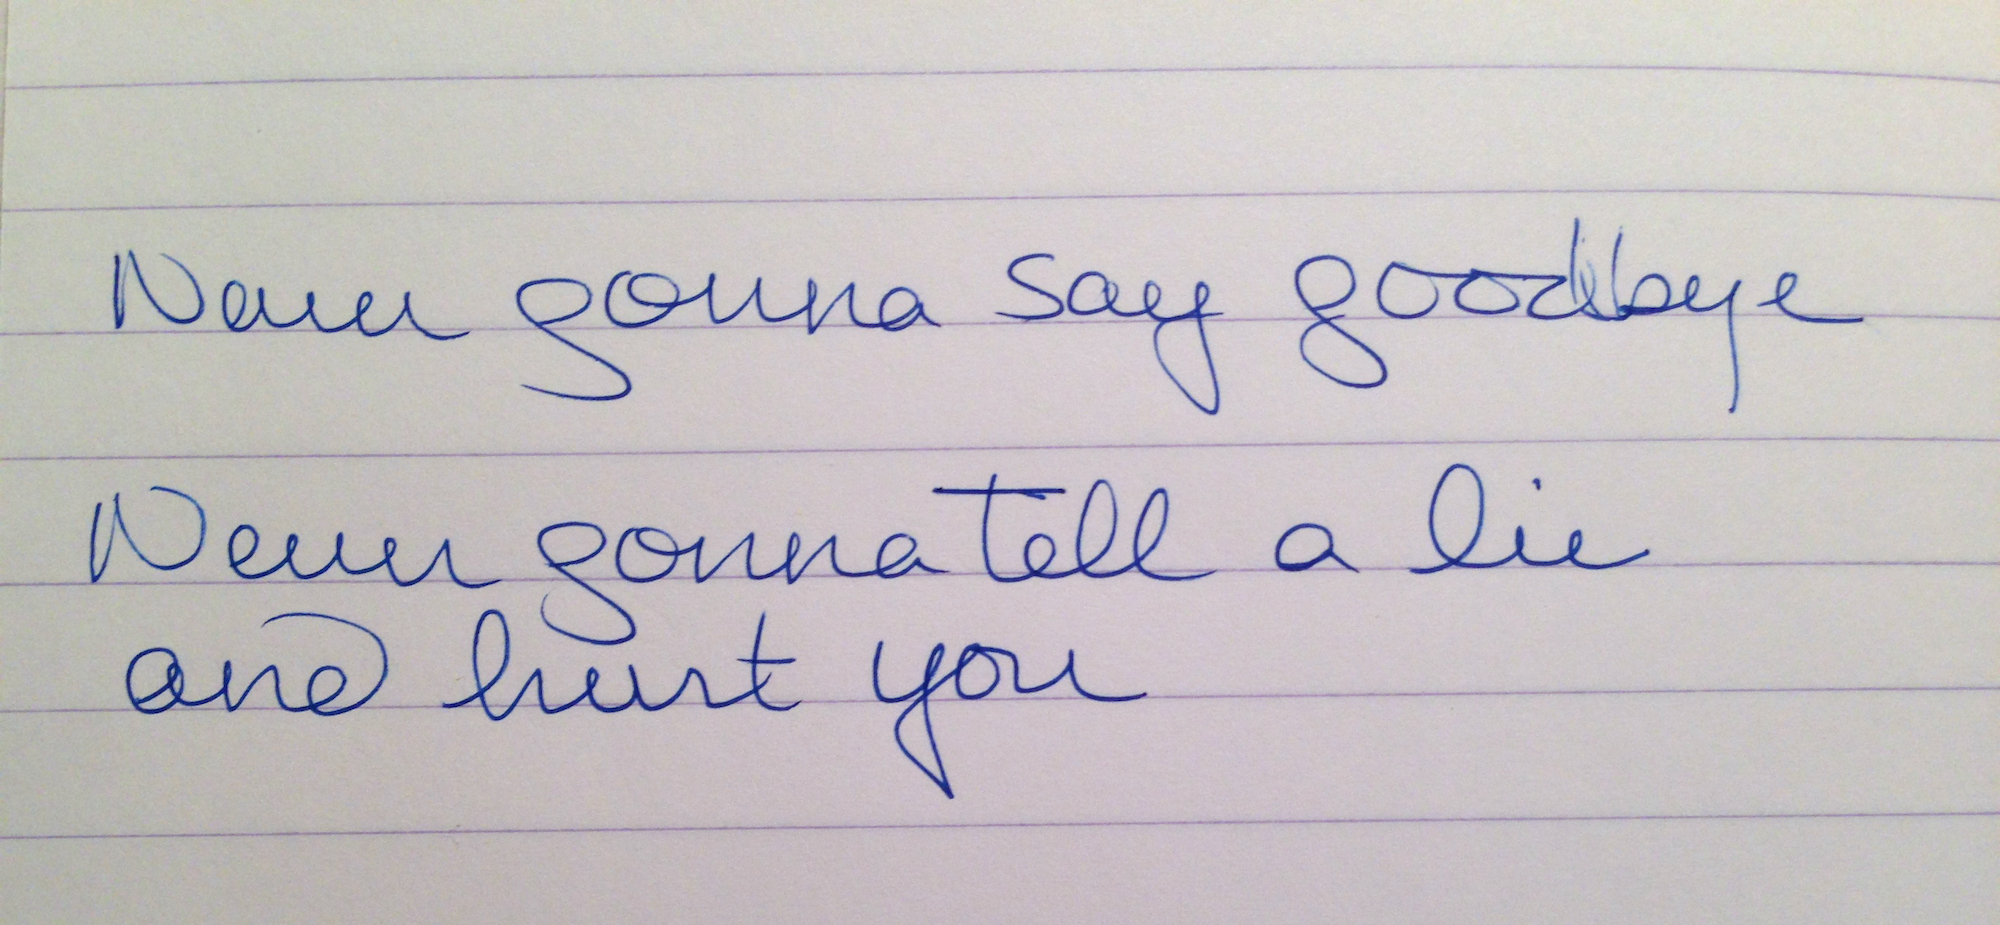 Never gonna say goodbye
Never gonna tell a lie
and hurt you